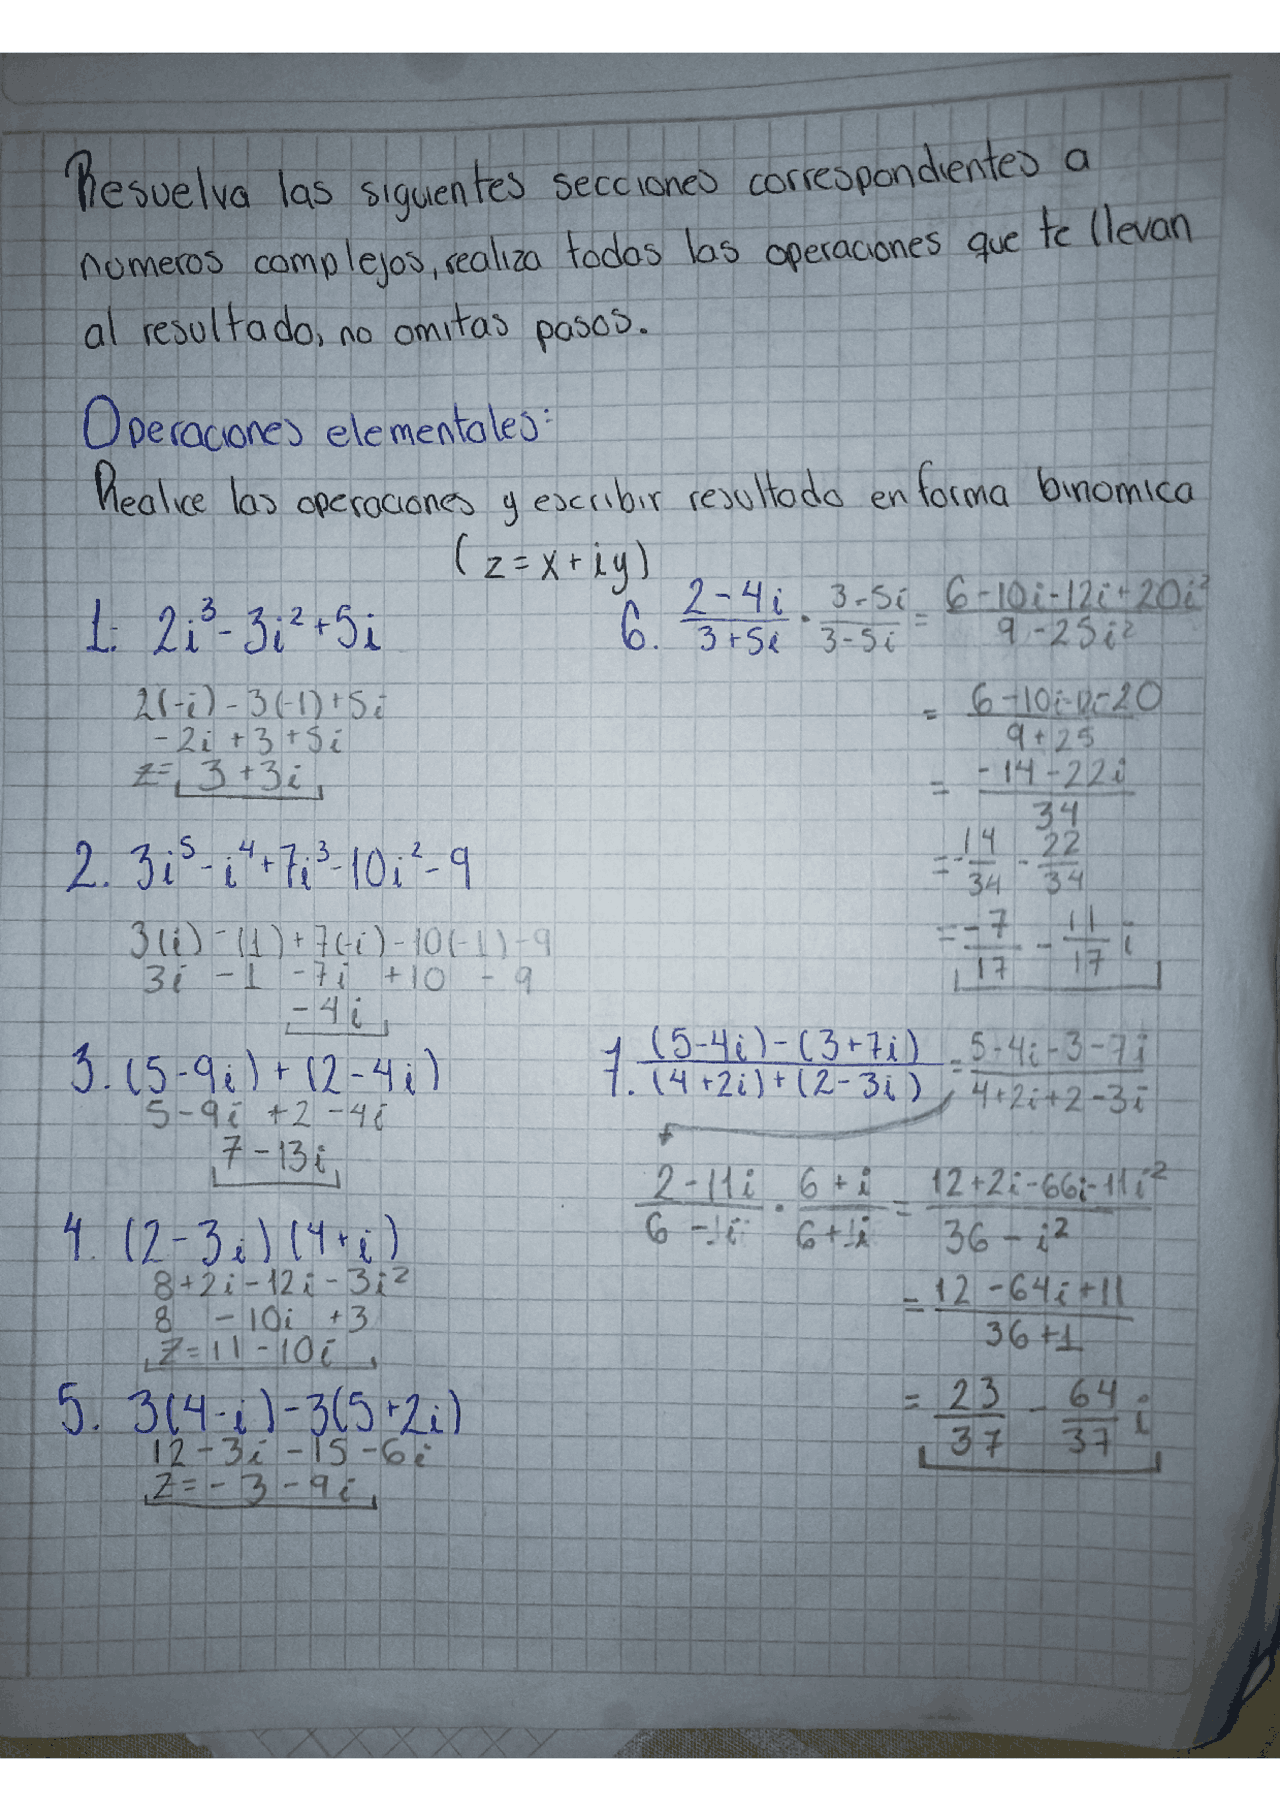 Resuelva las siguientes secciones correspondientes a
numeros complejos, realiza todas las operaciones que te llevan
al resultado, no omitas pasos.
Operaciones elementales:
Realice las operaciones y escribir resultado en forma binomica
(z = x + iy)
1. 2i³ - 3i² + 5i
2(-i) - 3(-1) + 5i
-2i + 3 + 5i
z = 3 + 3i
2. 3i⁵ - i⁴ + 7i³ - 10i² - 9
3(i) - (1) + 7(-i) - 10(-1) - 9
3i - 1 - 7i + 10 - 9
- 4i
3. (5 - 9i) + (2 - 4i)
5 - 9i + 2 - 4i
7 - 13i
4. (2 - 3i)(4 + i)
8 + 2i - 12i - 3i²
8 - 10i + 3
z = 11 - 10i
5. 3(4 - i) - 3(5 + 2i)
12 - 3i - 15 - 6i
z = - 3 - 9i
6. (2 - 4i)/(3 + 5i) · (3 - 5i)/(3 - 5i) = (6 - 10i - 12i + 20i²)/(9 - 25i²)
= (6 - 10i - 12i - 20)/(9 + 25)
= (-14 - 22i)/34
= -14/34 - 22/34
= -7/17 - 11/17 i
7. ((5 - 4i) - (3 + 7i))/((4 + 2i) + (2 - 3i)) = (5 - 4i - 3 - 7i)/(4 + 2i + 2 - 3i)
(2 - 11i)/(6 - 1i) · (6 + i)/(6 + 1i) = (12 + 2i - 66i - 11i²)/(36 - i²)
= (12 - 64i + 11)/(36 + 1)
= 23/37 - 64/37 i